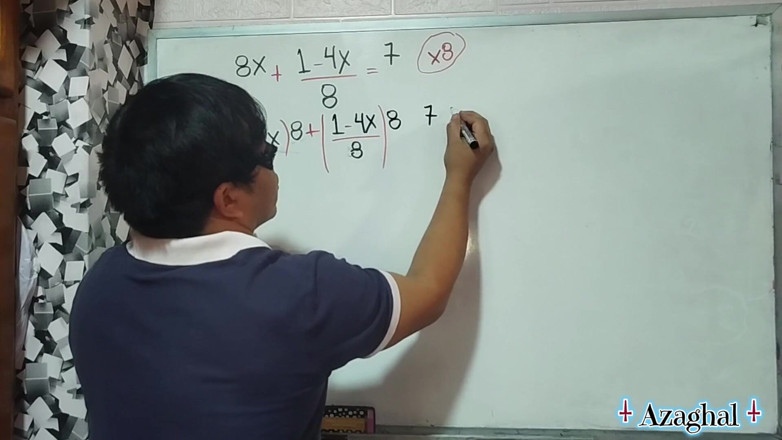 8x + 1-4x/8 = 7 x8
x)8+(1-4x/8)8 7
Azaghal